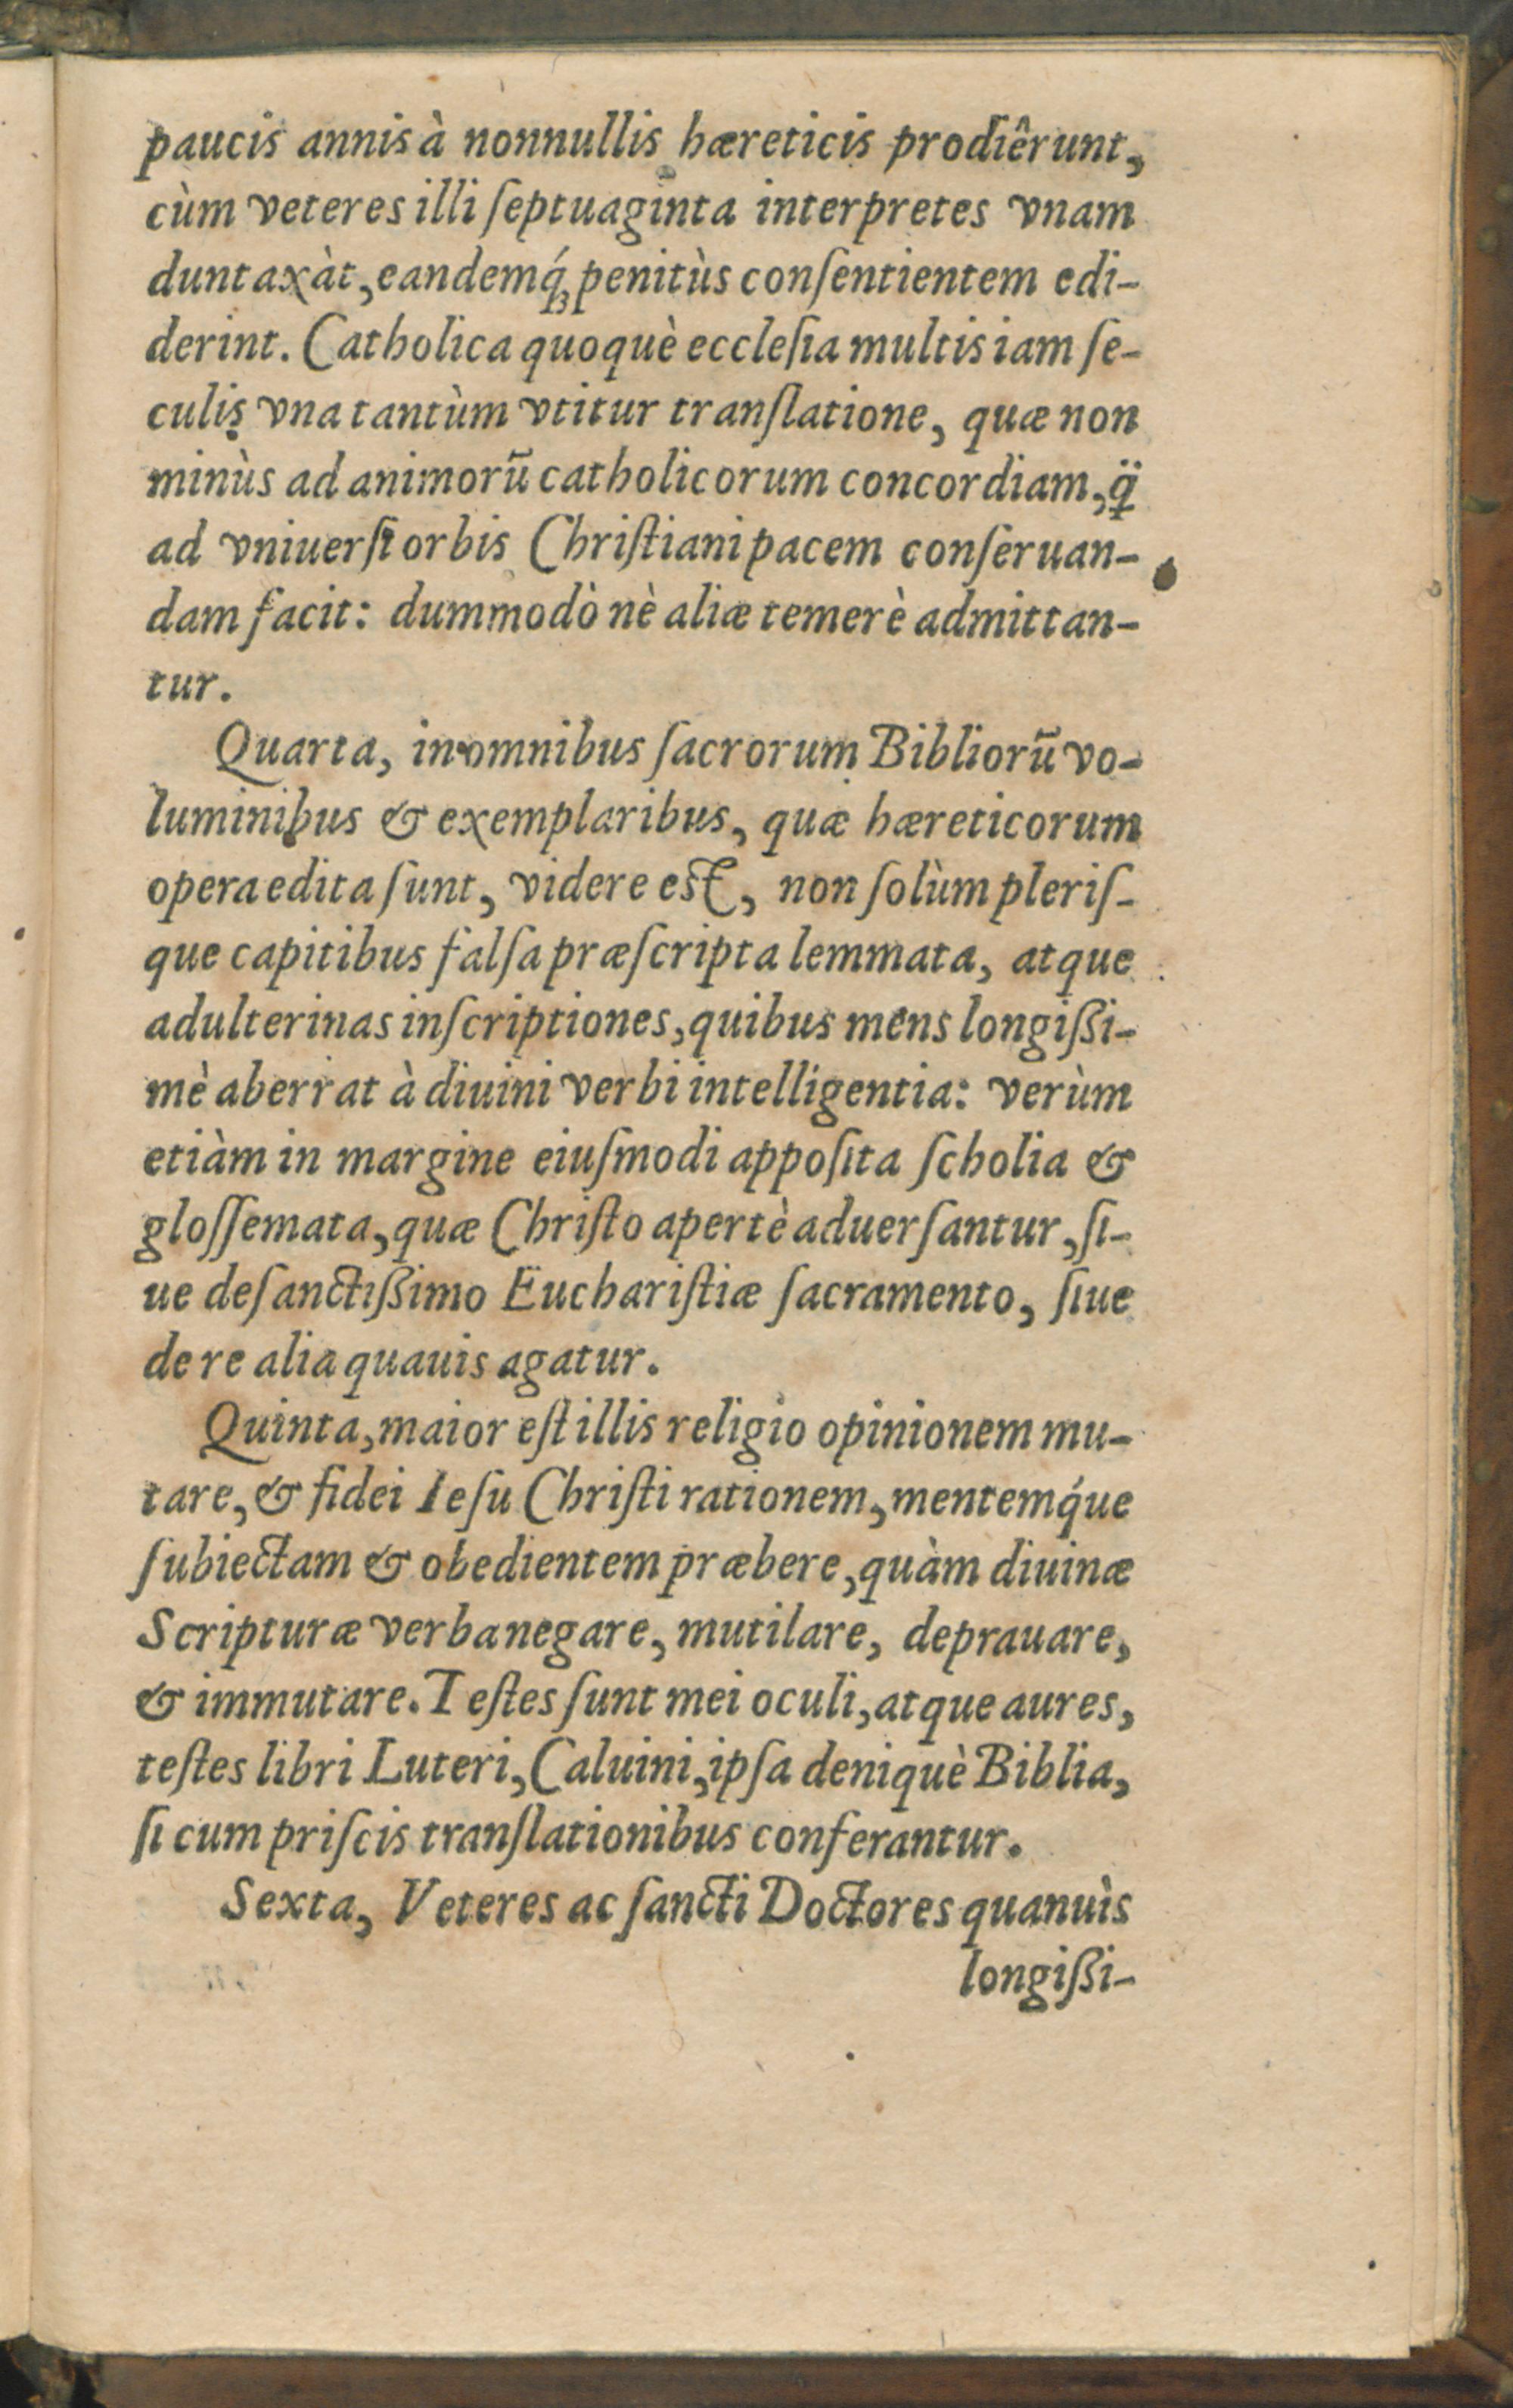 paucis annis à nonnullis hæreticis prodiêrunt,
cùm veteres illi ſeptuaginta interpretes vnam
duntaxàt, eandemq́ꝫ penitùs conſentientem edi-
derint. Catholica quoquè eccleſia multis iam ſe-
culis vna tantùm vtitur tranſlatione, quæ non
minùs ad animorū catholicorum concordiam, q̈̃
ad vniuerſi orbis Chriſtiani pacem conſeruan-
dam facit: dummodò nè aliæ temerè admittan-
tur.
Quarta, in omnibus ſacrorum Bibliorū vo-
luminibus & exemplaribus, quæ hæreticorum
opera edita ſunt, videre eſt, non ſolùm pleriſ-
que capitibus falſa præſcripta lemmata, atque
adulterinas inſcriptiones, quibus mens longißi-
mè aberrat à diuini verbi intelligentia: verùm
etiàm in margine eiuſmodi appoſita ſcholia &
gloſſemata, quæ Chriſto apertè aduerſantur, ſi-
ue de ſanctißimo Euchariſtiæ ſacramento, ſiue
de re alia quauis agatur.
Quinta, maior eſt illis religio opinionem mu-
tare, & fidei Ieſu Chriſti rationem, mentemq́ue
ſubiectam & obedientem præbere, quàm diuinæ
Scripturæ verba negare, mutilare, deprauare,
& immutare. Teſtes ſunt mei oculi, atque aures,
teſtes libri Luteri, Caluini, ipſa deniquè Biblia,
ſi cum priſcis tranſlationibus conferantur.
Sexta, Veteres ac ſancti Doctores quanuìs
longißi-